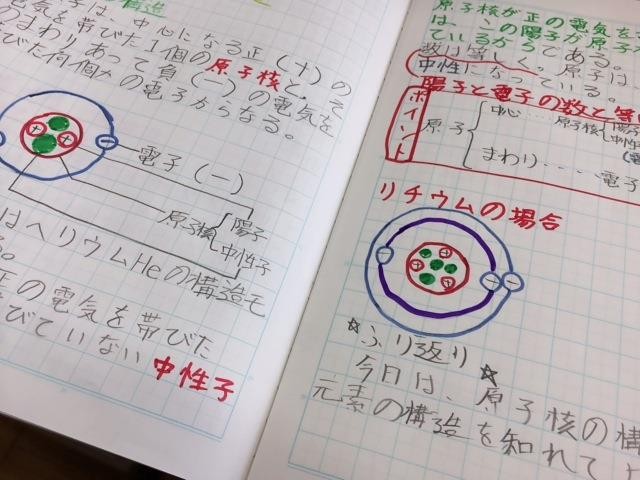 の構造
子は、中心になる正(十)の
電気を帯びた1個の原子核と、そ
のまわりあって負(一)の電気を
びた何個かの電子からなる。
電子(一)
原子核
陽子
中性子
はヘリウムHeの構造モ
る。
正の電気を帯びた
びていない中性子
原子核が正の電気を
は、この陽子が原子
ているからである。
数は等しく。原子は、
中性になっている。
陽子と電子の数と等
ポイント
原子
中心....原子核
陽子
中性
まわり....電子
リチウムの場合
☆ふり返り☆
今日は、原子核の構
元素の構造を知れて